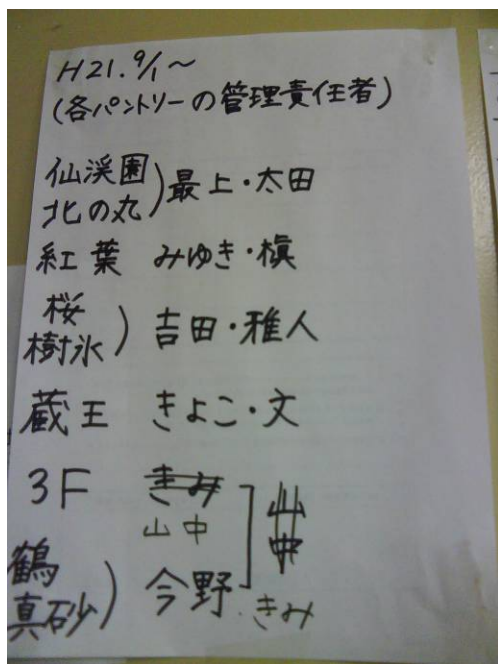 H21.9/1~
(各パントリーの管理責任者)
仙渓園
北の丸)最上・太田
紅葉 みゆき・槇
桜
樹氷)吉田・雅人
蔵王 きよこ・文
3F きみ
山中
山中
鶴
真砂)今野
・きみ